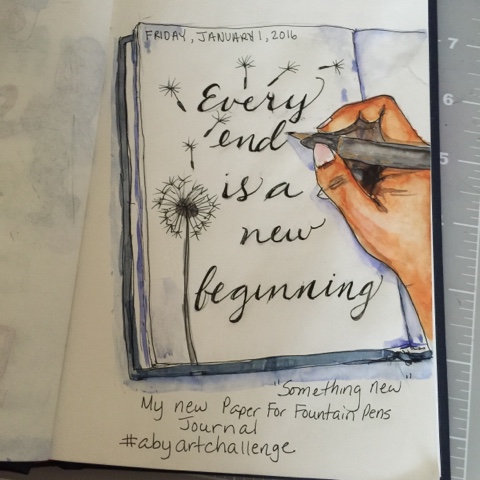 FRIDAY, JANUARY 1, 2016
Every
end
is a
new
beginning
"Something new"
My new Paper For Fountain Pens
Journal
#abyartchallenge
7
6
5